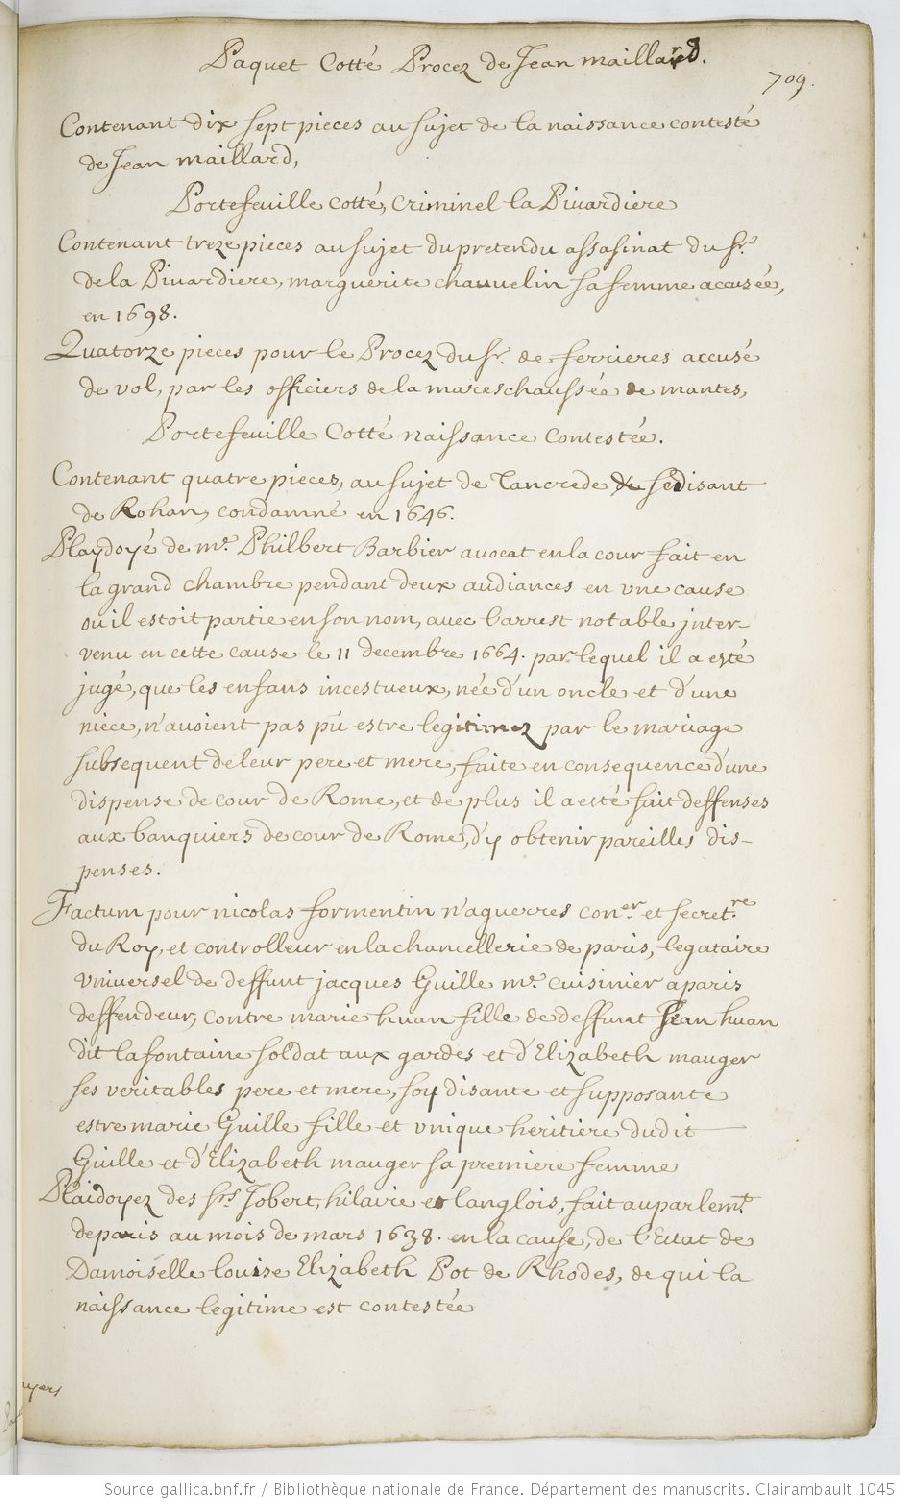 Paquet Cotté Procez de Jean maillard.
709.
Contenant dix sept pieces au sujet de la naissance contesté
de Jean maillard,
Portefeuille cotté, criminel la Pivardiere
Contenant treze pieces au sujet du pretendu assasinat du Sr.
de la Pivardiere, marguerite chauvelin sa femme accusée,
en 1698.
Quatorze pieces pour le Procez du Sr. de ferrieres accusé
de vol, par les officiers de la mareschaussée de mantes,
Portefeuille Cotté naissance Contestée.
Contenant quatre pieces, au sujet de Tancrede se disant
de Rohan, condamné en 1646.
Playdoyé de me. Philbert Barbier avocat en la cour fait en
la grand chambre pendant deux audiances en une cause
ou il estoit partie en son nom, avec larrest notable inter-
venu en cette cause le 11 decembre 1664. par lequel il a esté
jugé, que les enfans incestueux, née d'un oncle et d'une
niece, n'avoient pas pû estre legitimez par le mariage
subsequent de leur pere et mere, faite en consequence d'une
dispense de cour de Rome, et de plus il a esté fait deffenses
aux banquiers de cour de Rome, d'y obtenir pareilles dis-
penses.
Factum pour nicolas formentin n'aguerres coner. et secretre.
du Roy, et controlleur en la chancellerie de paris, legataire
universel de deffunt jacques Guille me. cuisinier a paris
deffendeur, contre marie huan fille de deffunt Jean huan
dit lafontaine soldat aux gardes et d'Elizabeth mauger
ses veritables pere et mere, soy disante et supposante
estre marie Guille fille et unique heritiere dudit
Guille et d'Elizabeth mauger sa premiere femme
Plaidoyez des Srs. Jobert, hilaire et langlois, fait au parlemt.
de paris au mois de mars 1638. en la cause, de l'Estat de
Damoiselle louise Elizabeth Pot de Rhodes, de qui la
naissance legitime est contestée
Source gallica.bnf.fr / Bibliothèque nationale de France. Département des manuscrits. Clairambault 1045